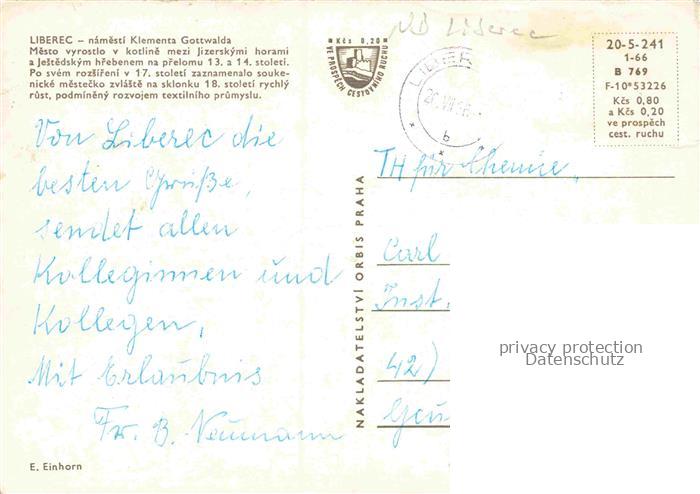 LIBEREC – náměstí Klementa Gottwalda
Město vyrostlo v kotlině mezi Jizerskými horami
a Ještědským hřebenem na přelomu 13. a 14. století.
Po svém rozšíření v 17. století zaznamenalo souke-
nické městečko zvláště na sklonku 18. století rychlý
růst, podmíněný rozvojem textilního průmyslu.
Kčs 0,20
VE PROSPĚCH CESTOVNÍHO RUCHU
Liberec
LIBEREC
b
20-5-241
1-66
B 769
F-10*53226
Kčs 0,80
a Kčs 0,20
ve prospěch
cest. ruchu
Von Liberec die
besten Grüße,
sendet allen
Kolleginnen und
Kollegen,
Mit Erlaubnis
Fr. B. Neumann
E. Einhorn
NAKLADATELSTVÍ ORBIS PRAHA
TH für Chemie,
Carl
Inst.
42)
privacy protection
Datenschutz